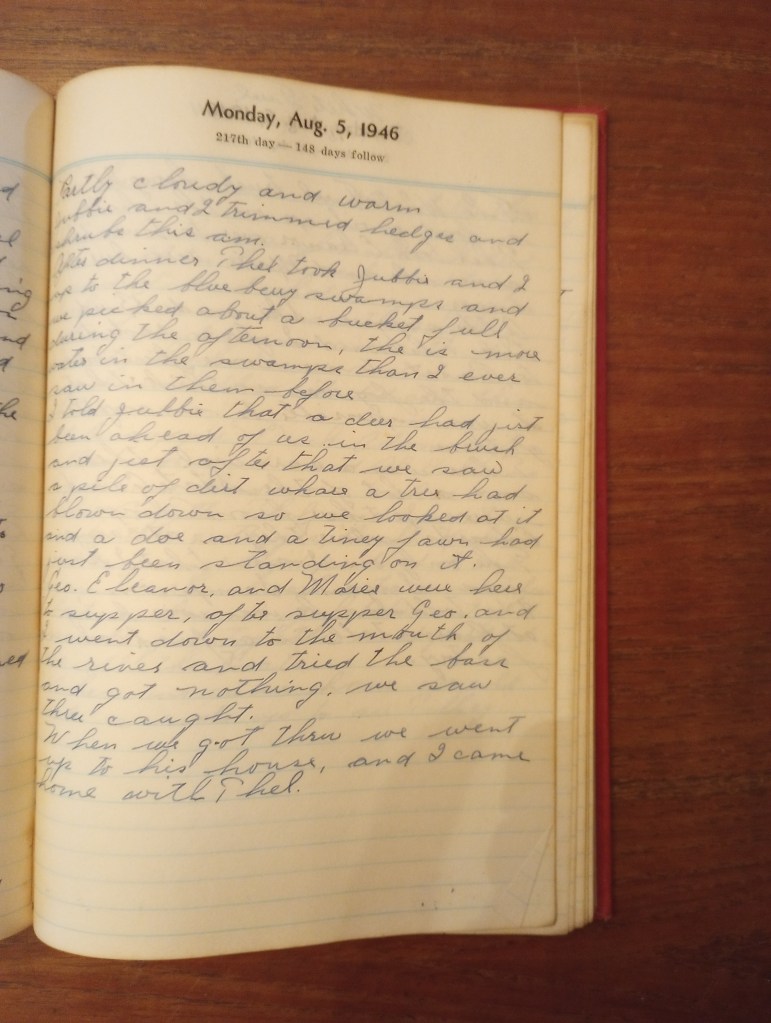 Monday, Aug. 5, 1946
217th day — 148 days follow
Partly cloudy and warm
Jubbie and I trimmed hedges and
shrubs this am.
After dinner Thel took Jubbie and I
up to the blueberry swamps and
we picked about a bucket full
during the afternoon, the is more
water in the swamps than I ever
saw in them before
I told Jubbie that a deer had just
been ahead of us in the brush
and just after that we saw
a pile of dirt whare a tree had
blown down so we looked at it
and a doe and a tiney fawn had
just been standing on it.
Geo. Eleanor, and Marie were here
to supper, after supper Geo. and
I went down to the mouth of
the river and tried the bass
and got nothing. we saw
three caught.
When we got thru we went
up to his house, and I came
home with Thel.